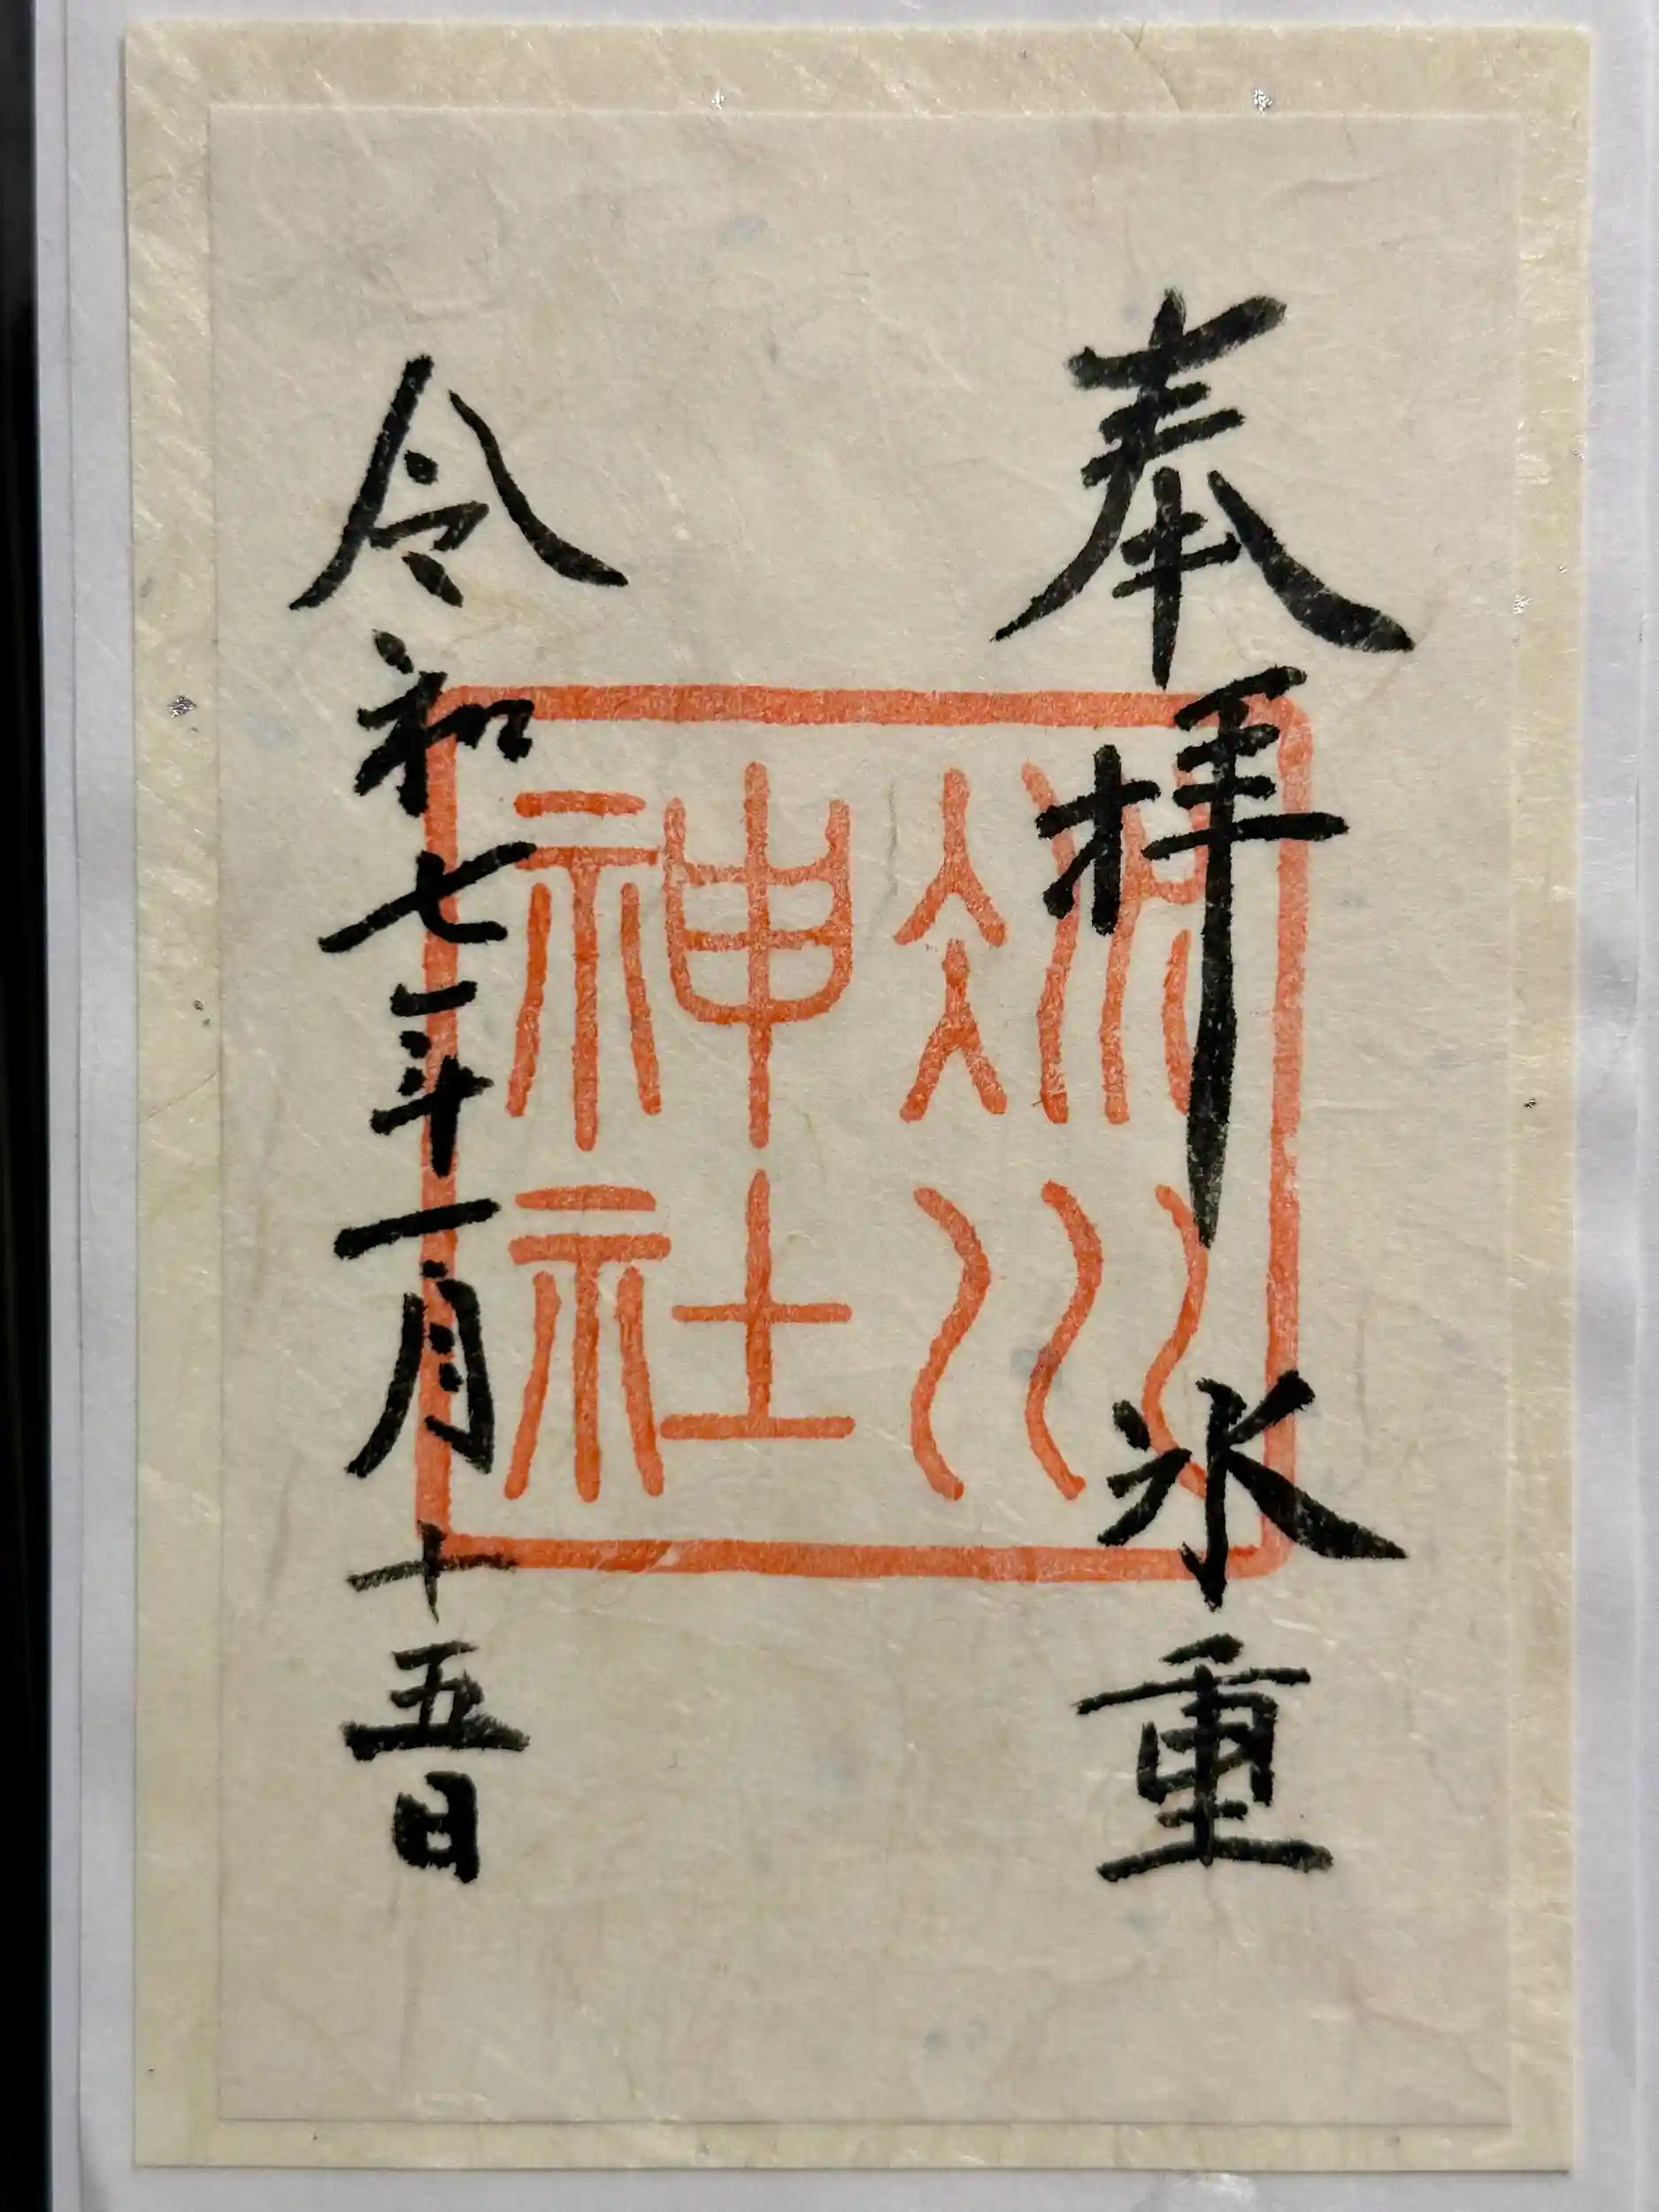 奉拝 氷重
氷川
神社
令和七年一月十五日